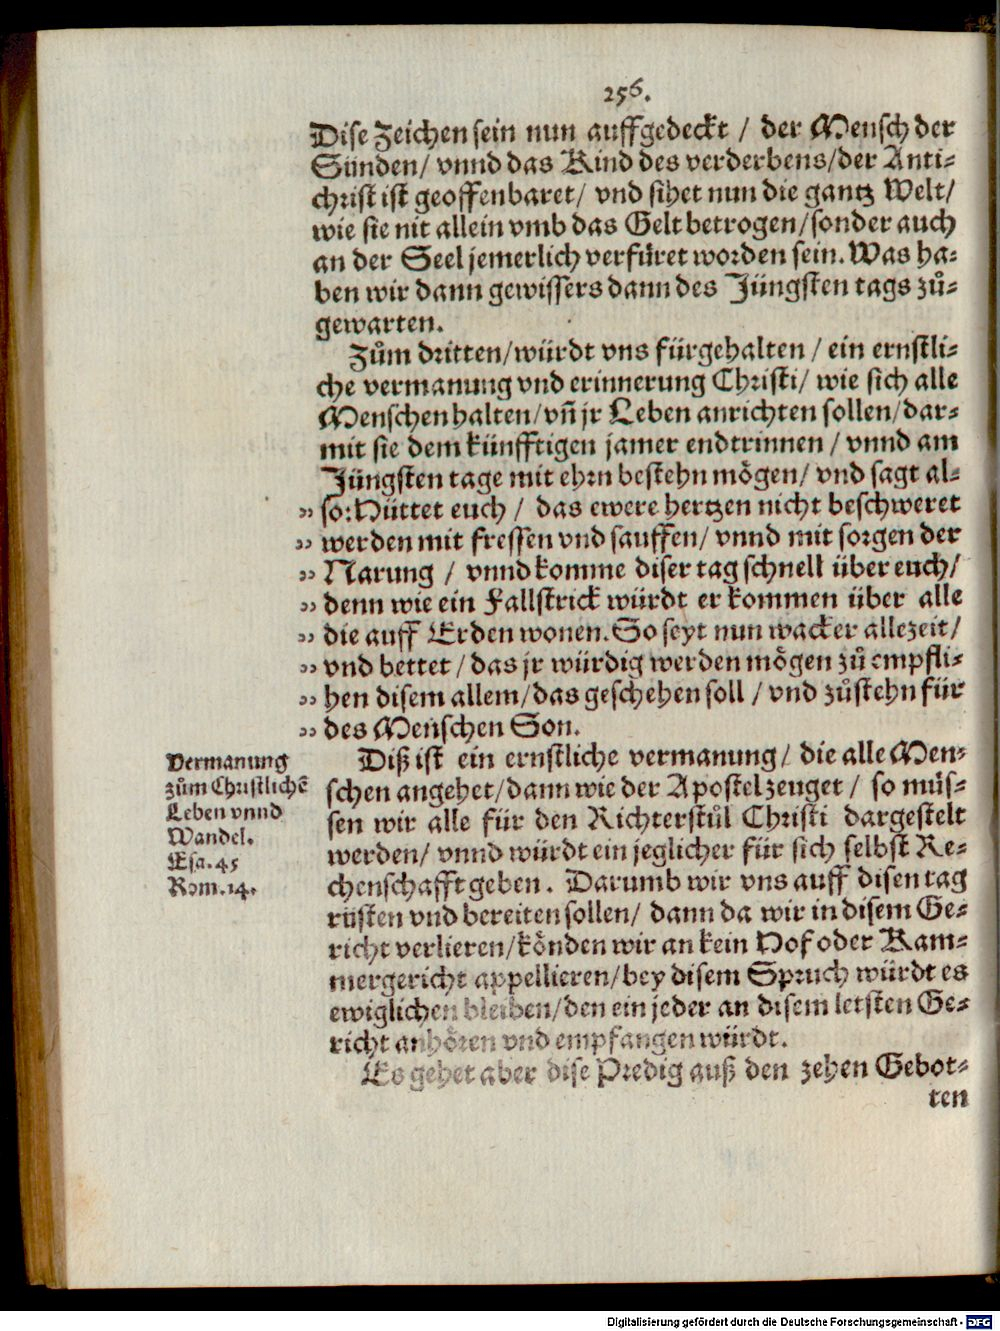 256.
Dise Zeichen sein nun auffgedeckt / der Mensch der
Sünden/ vnnd das Kind des verderbens/der Anti-
christ ist geoffenbaret/ vnd sihet nun die gantz Welt/
wie sie nit allein vmb das Gelt betrogen/sonder auch
an der Seel jemerlich verfüret worden sein. Was ha-
ben wir dann gewissers dann des Jüngsten tags zů-
gewarten.
Zům dritten/würdt vns fürgehalten / ein ernstli-
che vermanung vnd erinnerung Christi/ wie sich alle
Menschen halten/vñ jr Leben anrichten sollen/dar-
mit sie dem künfftigen jamer endtrinnen / vnnd am
Jüngsten tage mit ehrn bestehn mögen/ vnd sagt al-
„ so: Hüttet euch / das ewere hertzen nicht beschweret
„ werden mit fressen vnd sauffen/ vnnd mit sorgen der
„ Narung / vnnd komme diser tag schnell über euch/
„ denn wie ein Fallstrick würdt er kommen über alle
„ die auff Erden wonen. So seyt nun wacker allezeit/
„ vnd bettet / das jr würdig werden mögen zů empfli-
„ hen disem allem/das geschehen soll / vnd zůstehn für
„ des Menschen Son.
Vermanung
zům Christlichẽ
Leben vnnd
Wandel.
Esa. 45
Rom. 14.
Diß ist ein ernstliche vermanung/ die alle Men-
schen angehet/dann wie der Apostel zeuget / so müs-
sen wir alle für den Richterstůl Christi dargestelt
werden/ vnnd würdt ein jeglicher für sich selbst Re-
chenschafft geben. Darumb wir vns auff disen tag
rüsten vnd bereiten sollen/ dann da wir in disem Ge-
richt verlieren/könden wir an kein Hof oder Kam-
mergericht appellieren/bey disem Spruch würdt es
ewiglichen bleiben/den ein jeder an disem letsten Ge-
richt anhören vnd empfangen würdt.
Es gehet aber dise Predig auß den zehen Gebot-
ten
Digitalisierung gefördert durch die Deutsche Forschungsgemeinschaft - DFG